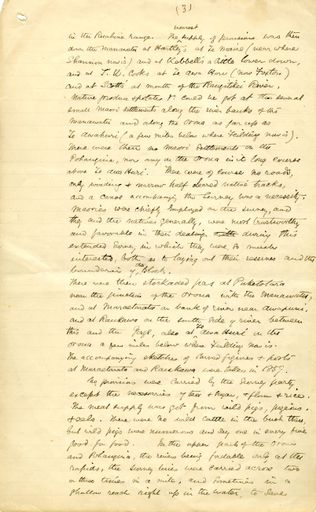 (3)
nearest
in the Ruahine range. The supply of provisions was then
down the Manawatu at Hartley's at Te Maire (near where
Shannon now is) and at Kebbell's a little lower down,
and at T. U. Cook's at Te Awa Hou (now Foxton)
and at Scott's at mouth of the Rangitikei River.
Native produce & potatoes &c could be got at the several
small Maori settlements along the river banks of the
Manawatu and along the Oroua as far up as
Te Awahuri (a few miles below where Feilding now is).
There were then no Maori settlements on the
Pohangina, nor any on the Oroua in its long course
above Te Awa Huri. There were of course no roads,
only winding & narrow native tracks,
and a canoe accompanying the survey was a necessity.
Maories was chiefly employed on the survey, and
they and the natives generally, were most trustworthy
and favourable in their dealing during this
extended survey, in which they were so much
interested, both as to laying out their reserves and the
boundaries of the Block.
There were then stockaded pas at Puketotara
near the junction of the Oroua with the Manawatu,
and at Moutoa on bank of river near
and at Raukawa on the South side of river between
this and the also at Te Awa Huri on the
Oroua a few miles below where Feilding now is.
The accompanying sketches of carved figures & posts
at and Raukawa were taken in 1857.
The provisions were carried by the survey party
except the necessaries of tea & sugar, & flour & rice.
The meat supply was got from wild pigs, pigeons,
& eels. There were no wild cattle in the bush then
but wild pigs were numerous and they are in every place
good for food. In the upper parts of the Oroua
and Pohangina, the rivers being fordable only at the
rapids, the survey lines were carried across two
or three times in a mile, and sometimes in a
shallow reach right up in the water, to save